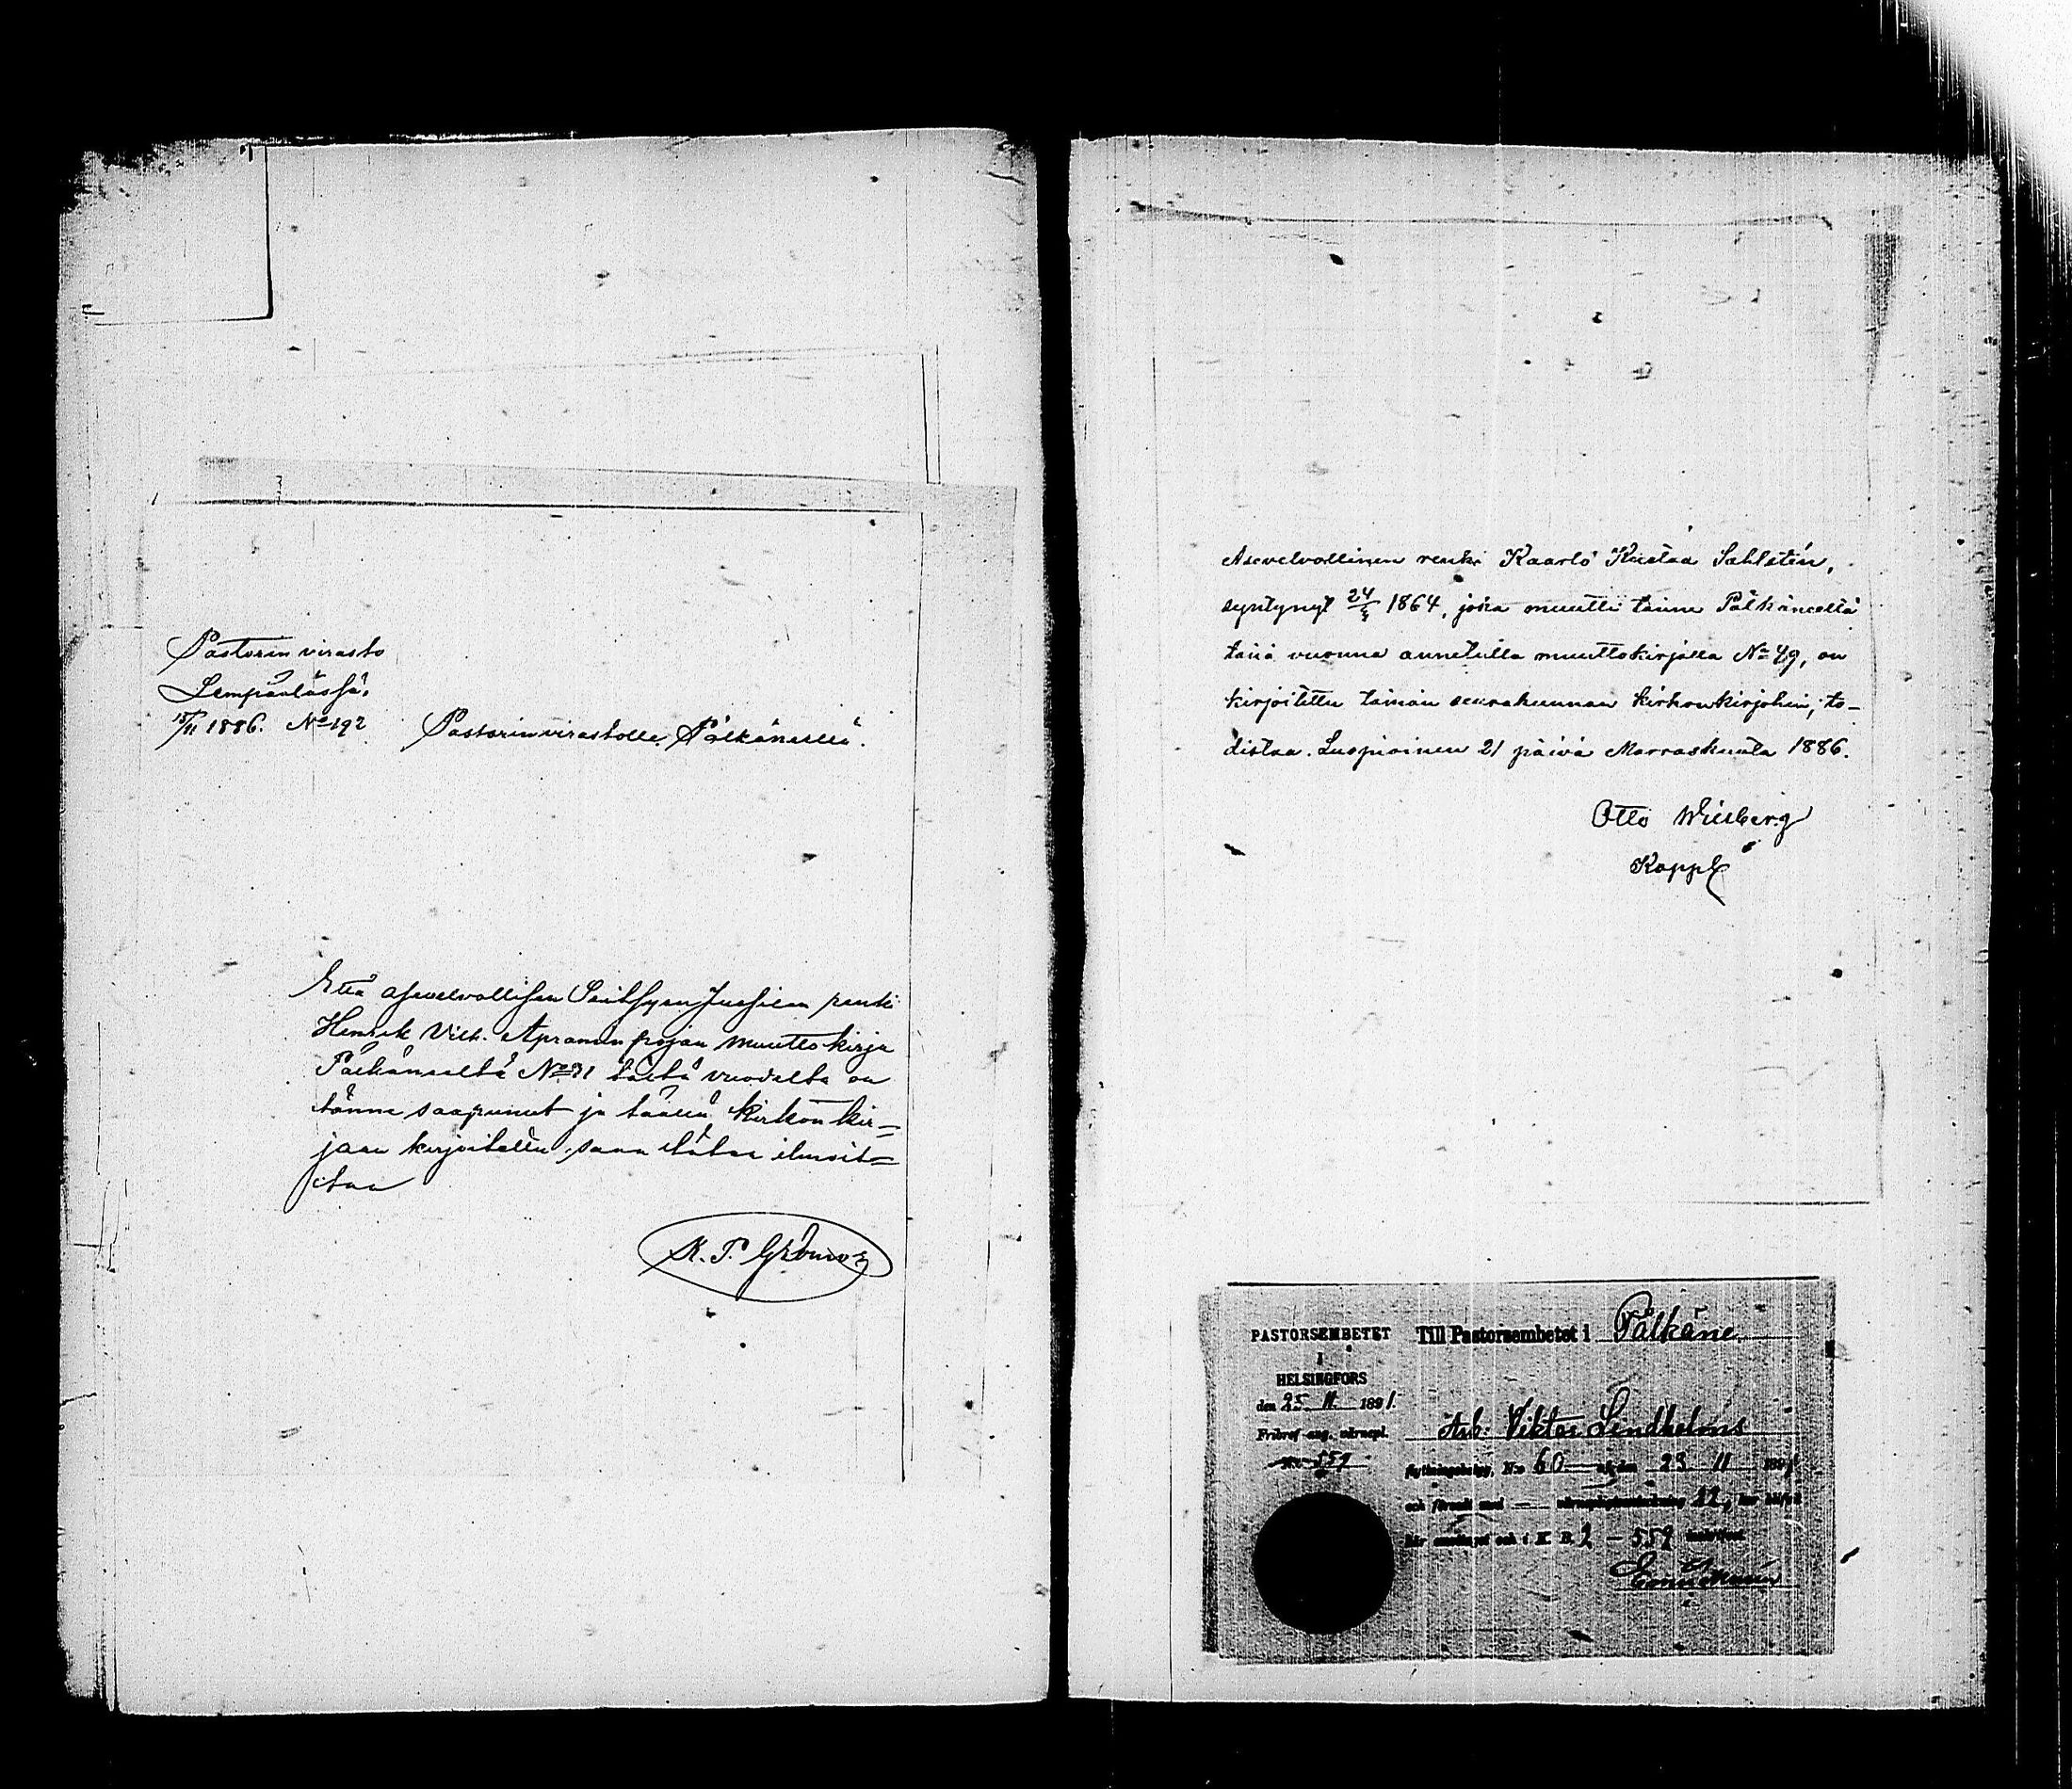 Pastorin virasto
Lempäälässä,
15/11 1886. No 192
Pastorinvirastolle Pälkäneellä.
Että asevelvollisen renki
Henrik Vilh. Apramin pojan muuttokirja
Pälkäneeltä No 31 tästä vuodelta on
tänne saapunut ja täällä kirkon kir=
jaan kirjoitettu, saan täten ilmoit=
taa
Asevelvollinen renki Kaarlo Kustaa Sahlstén,
syntynyt 1864, joka muutti tänne Pälkäneeltä
tänä vuonna annetulla muuttokirjalla No 49, on
kirjoitettu tämän seurakunnan kirkonkirjohin; to-
distaa. Luopioinen 21 päivä Marraskuuta 1886.
Otto
Kappl
PASTORSEMBETET
I
HELSINGFORS
den 25 11 1891.
Fribref ang. värnepl.
No 559
Till Pastorsembetet i Pälkäne
Arb. Viktor Lindholms
flyttningsbetyg, No 60 af den 23 11 1891
och försedt med — 22, har blifvit
här och i K. B. 2 — 559